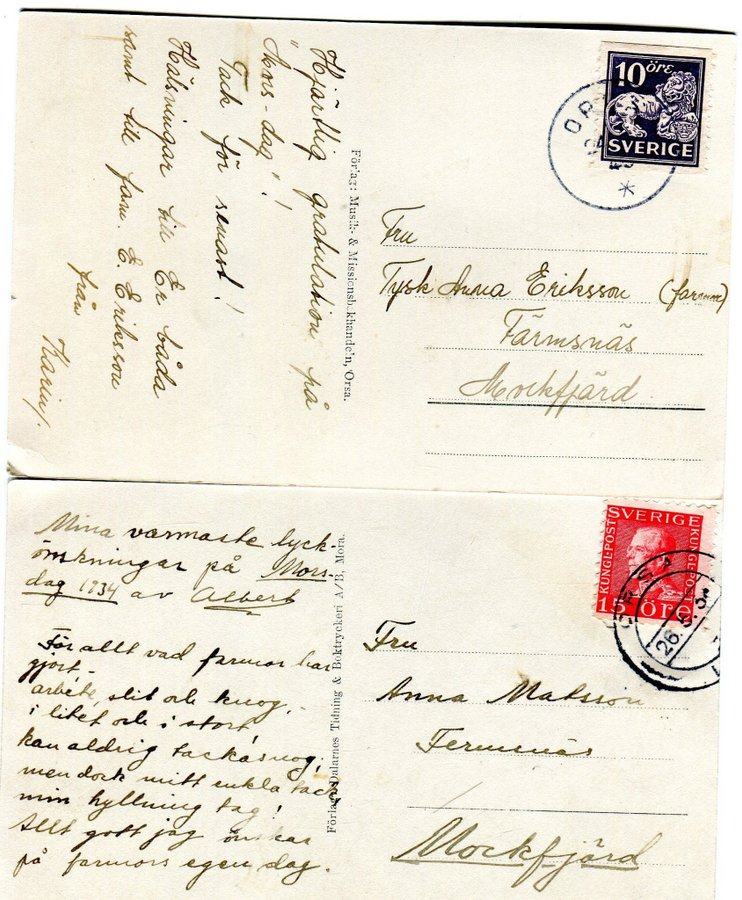 Hjärtlig gratulation på
"Mors-dag"!
Tack för senast!
Hälsningar till Er båda
samt till fam. E. Eriksson
från
Karin/.
Förlag: Musik- & Missionsbokhandeln, Orsa.
10 öre
SVERIGE
ORSA
Fru
Tysk Anna Eriksson (farmor)
Färmsnäs
Mockfjärd
Mina varmaste lyck-
önskningar på Mors-
dag 1934 av Albert
För allt vad farmor har
gjort -
arbete, slit och knog, -
i litet och i stort
kan aldrig tackas nog,
men dock mitt enkla tack
min hyllning tag!
Allt gott jag önskar
på farmors egen dag.
Förlag: Dalarnes Tidning & Boktryckeri A/B, Mora.
SVERIGE
KUNGL-POST
KUNGL-POST
15 öre
ORSA
26
Fru
Anna Matsson
Fermsnäs
Mockfjärd